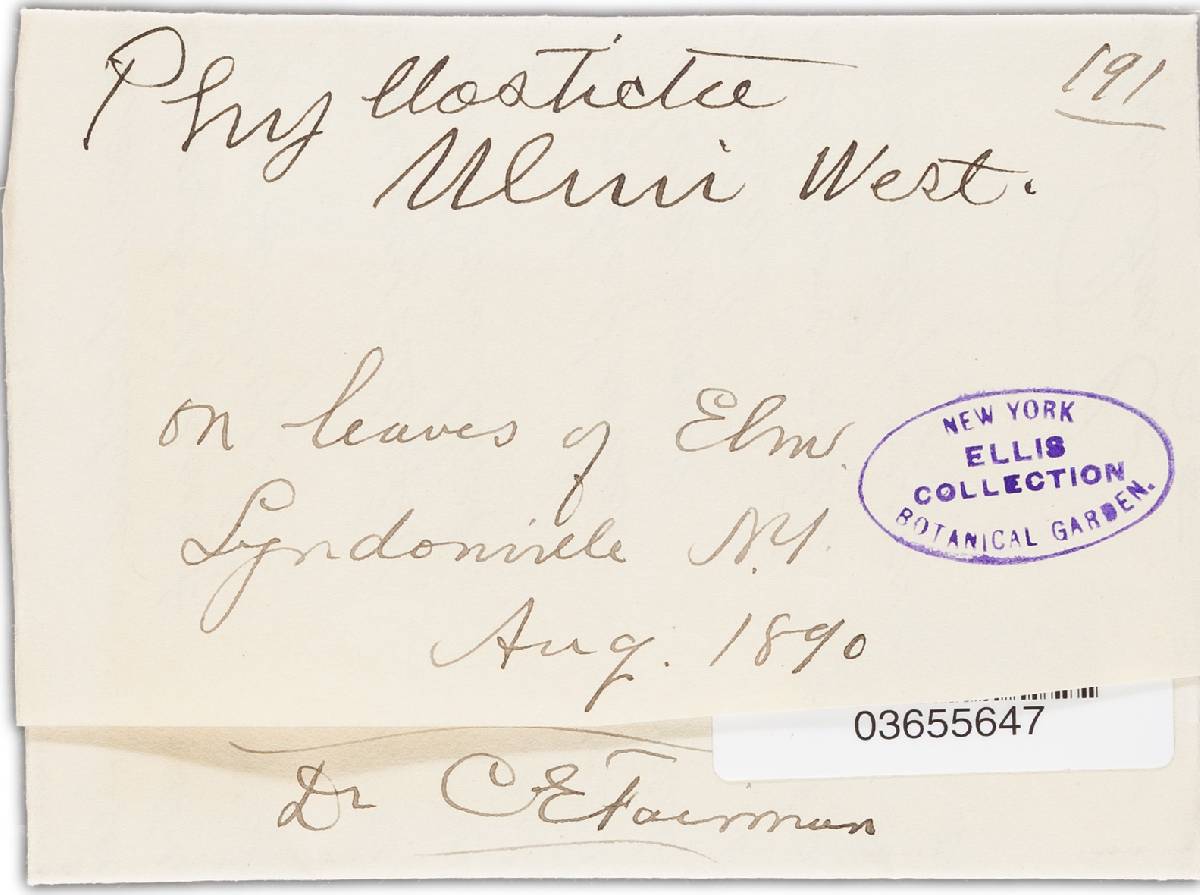 Phyllosticta
191
Ulmi West.
on leaves of Elm.
Lyndonville N.Y.
Aug. 1890
NEW YORK
ELLIS
COLLECTION
BOTANICAL GARDEN.
03655647
Dr C E Fairman